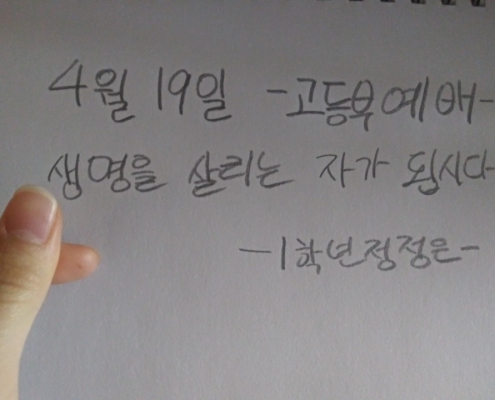 4월 19일 -고등부예배-
생명을 살리는 자가 됩시다
-1학년정정은-